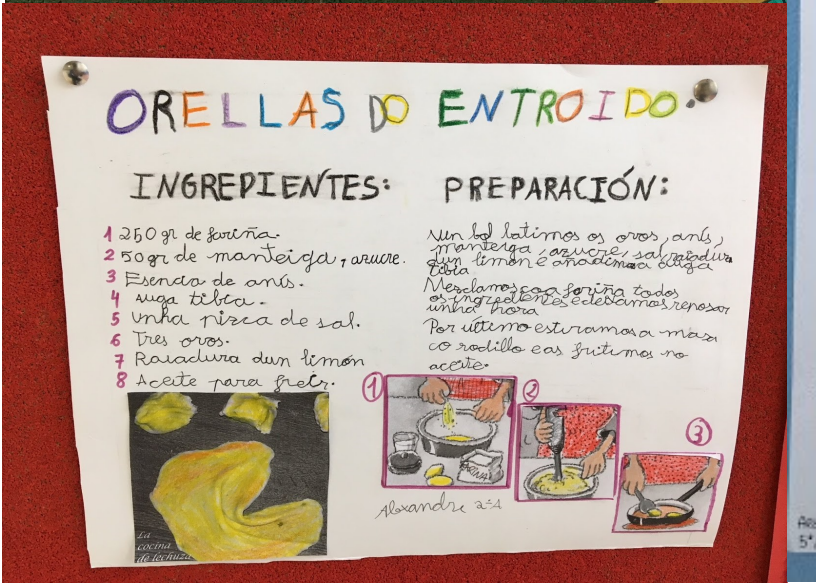 ORELLAS DO ENTROIDO.
INGREDIENTES:
1 250 gr de fariña.
2 50 gr de manteiga, azucre.
3 Esencia de anís.
4 Auga tibia.
5 Unha pizca de sal.
6 Tres ovos.
7 Raiadura dun limón
8 Aceite para freír.
PREPARACIÓN:
Nun bol batimos os ovos, anís,
manteiga, azucre, sal, raiadura
dun limón e añadimos a auga
tibia
Mesclamos coa fariña todos
os ingredientes e deixamos reposar
unha hora
Por último estiramos a masa
co rodillo e as fritimos no
aceite.
1
2
3
FARIÑA
Alexandre 2ºA
La
cocina
de lechuza
5º